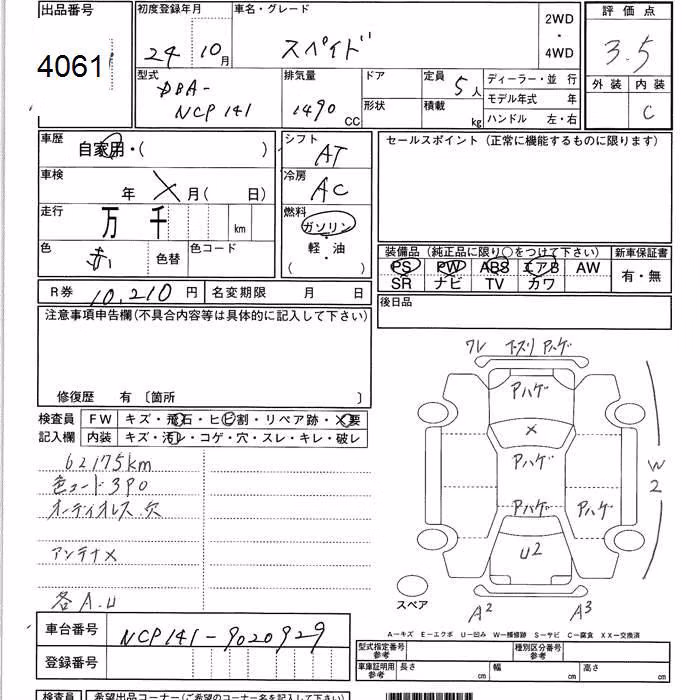 出品番号 初度登録年月 車名・グレード 評価点
4061 24 10月 スペイド 2WD・4WD 3.5
型式 排気量 ドア 定員 5人 ディーラー・並行 外装 内装
DBA- 形状 積載 kg モデル年式 年 C
NCP141 1490 CC ハンドル 左・右
車歴 自家用・( ) シフト AT セールスポイント(正常に機能するものに限ります)
車検 年 X 月( 日) 冷房 AC
走行 万 千 km 燃料 ガソリン・軽・油 ( )
色 赤 色替 色コード
装備品(純正品に限り○をつけて下さい) 新車保証書
PS PW ABS エアB AW 有・無
SR ナビ TV カワ
R券 10,210円 名変期限 月 日 後日品
注意事項申告欄(不具合内容等は具体的に記入して下さい)
修復歴 有 〔箇所 〕
ワレ 下スリ アハゲ
アハゲ
×
アハゲ
アハゲ アハゲ
U2
W2
スペア
A2 A3
検査員 FW キズ・飛石・ヒビ割・リペア跡・X要
記入欄 内装 キズ・汚レ・コゲ・穴・スレ・キレ・破レ
62175km
色コード3P0
オーディオレス穴
アンテナ×
各A.U
A−キズ E−エクボ U−凹み W−補修跡 S−サビ C−腐食 XX−交換済
車台番号 NCP141-9020929
登録番号
型式指定番号 参考 種別区分番号 参考
車庫証明用 参考 長さ cm 幅 cm 高さ cm
検査員 希望出品コーナー(ご希望のコーナー名を記入して下さい)